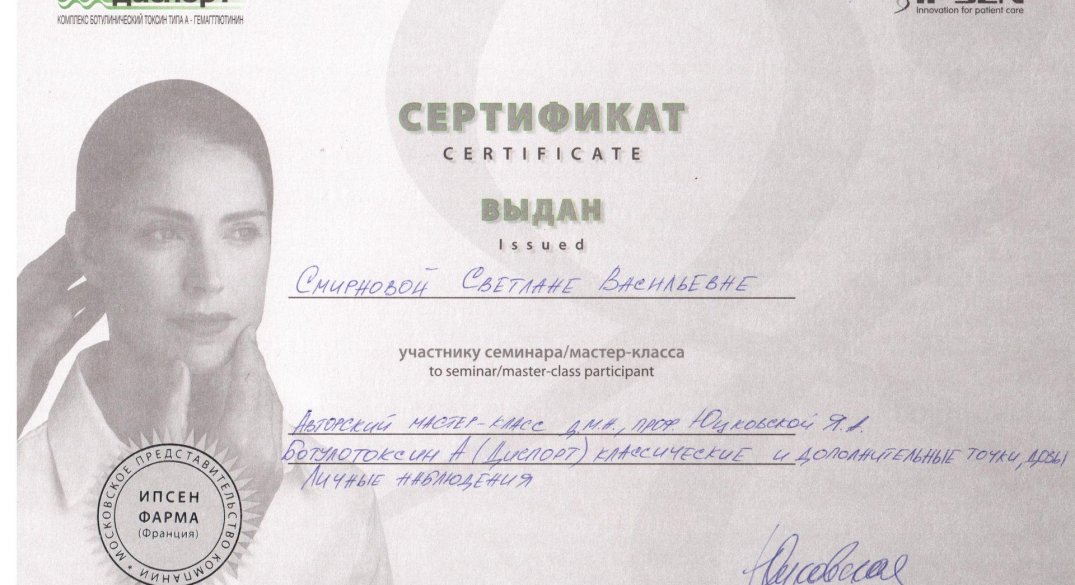 Диспорт
КОМПЛЕКС БОТУЛИНИЧЕСКИЙ ТОКСИН ТИПА А - ГЕМАГГЛЮТИНИН
IPSEN
Innovation for patient care
СЕРТИФИКАТ
CERTIFICATE
ВЫДАН
Issued
Смирновой Светлане Васильевне
участнику семинара/мастер-класса
to seminar/master-class participant
Авторский мастер-класс д.м.н., проф. Юцковской Я.А.
Ботулотоксин А (Диспорт) классические и дополнительные точки, дозы
Личные наблюдения
МОСКОВСКОЕ ПРЕДСТАВИТЕЛЬСТВО КОМПАНИИ
ИПСЕН
ФАРМА
(Франция)
Юцковская